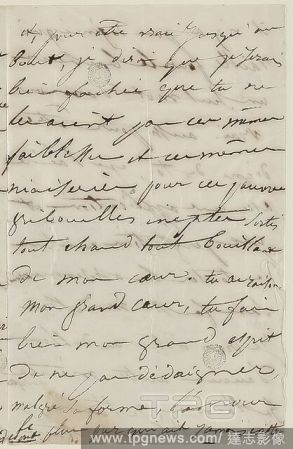 et pour être vraie jusqu'au
bout je dirai que je serais
bien fâchée que tu ne
les aient pas ces mêmes
faiblesses et ces mêmes
niaiseries pour ces pauvres
gribouillis ineptes sortis
tout chaud tout bouillant
de mon cœur. tu as raison
mon grand cœur, tu fais
bien mon grand esprit
de ne pas dédaigner,
malgré sa forme,
le plus pur qui ait
TPG
www.tpgnews.com / 達志影像